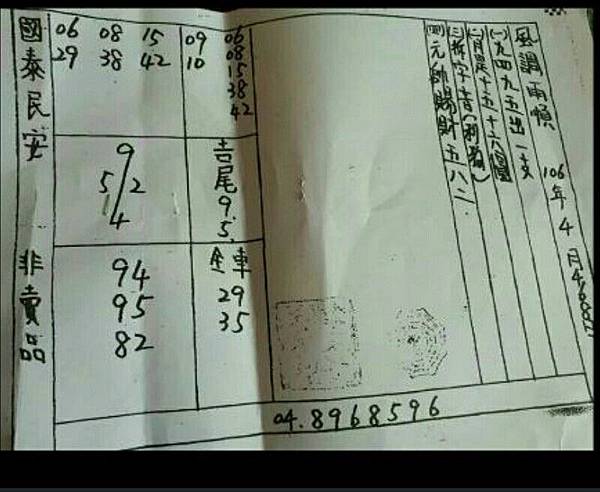 風調雨順
106年4月
(一)九四九五出一支
(二)月是十五十六圓
(四)元帥賜財五八二
06 08 15
29 38 42
09
10
06
08
15
38
42
9
5/2
4
吉尾9.5.
94
95
82
全車
29
35
國泰民安 非賣品
04.8968596